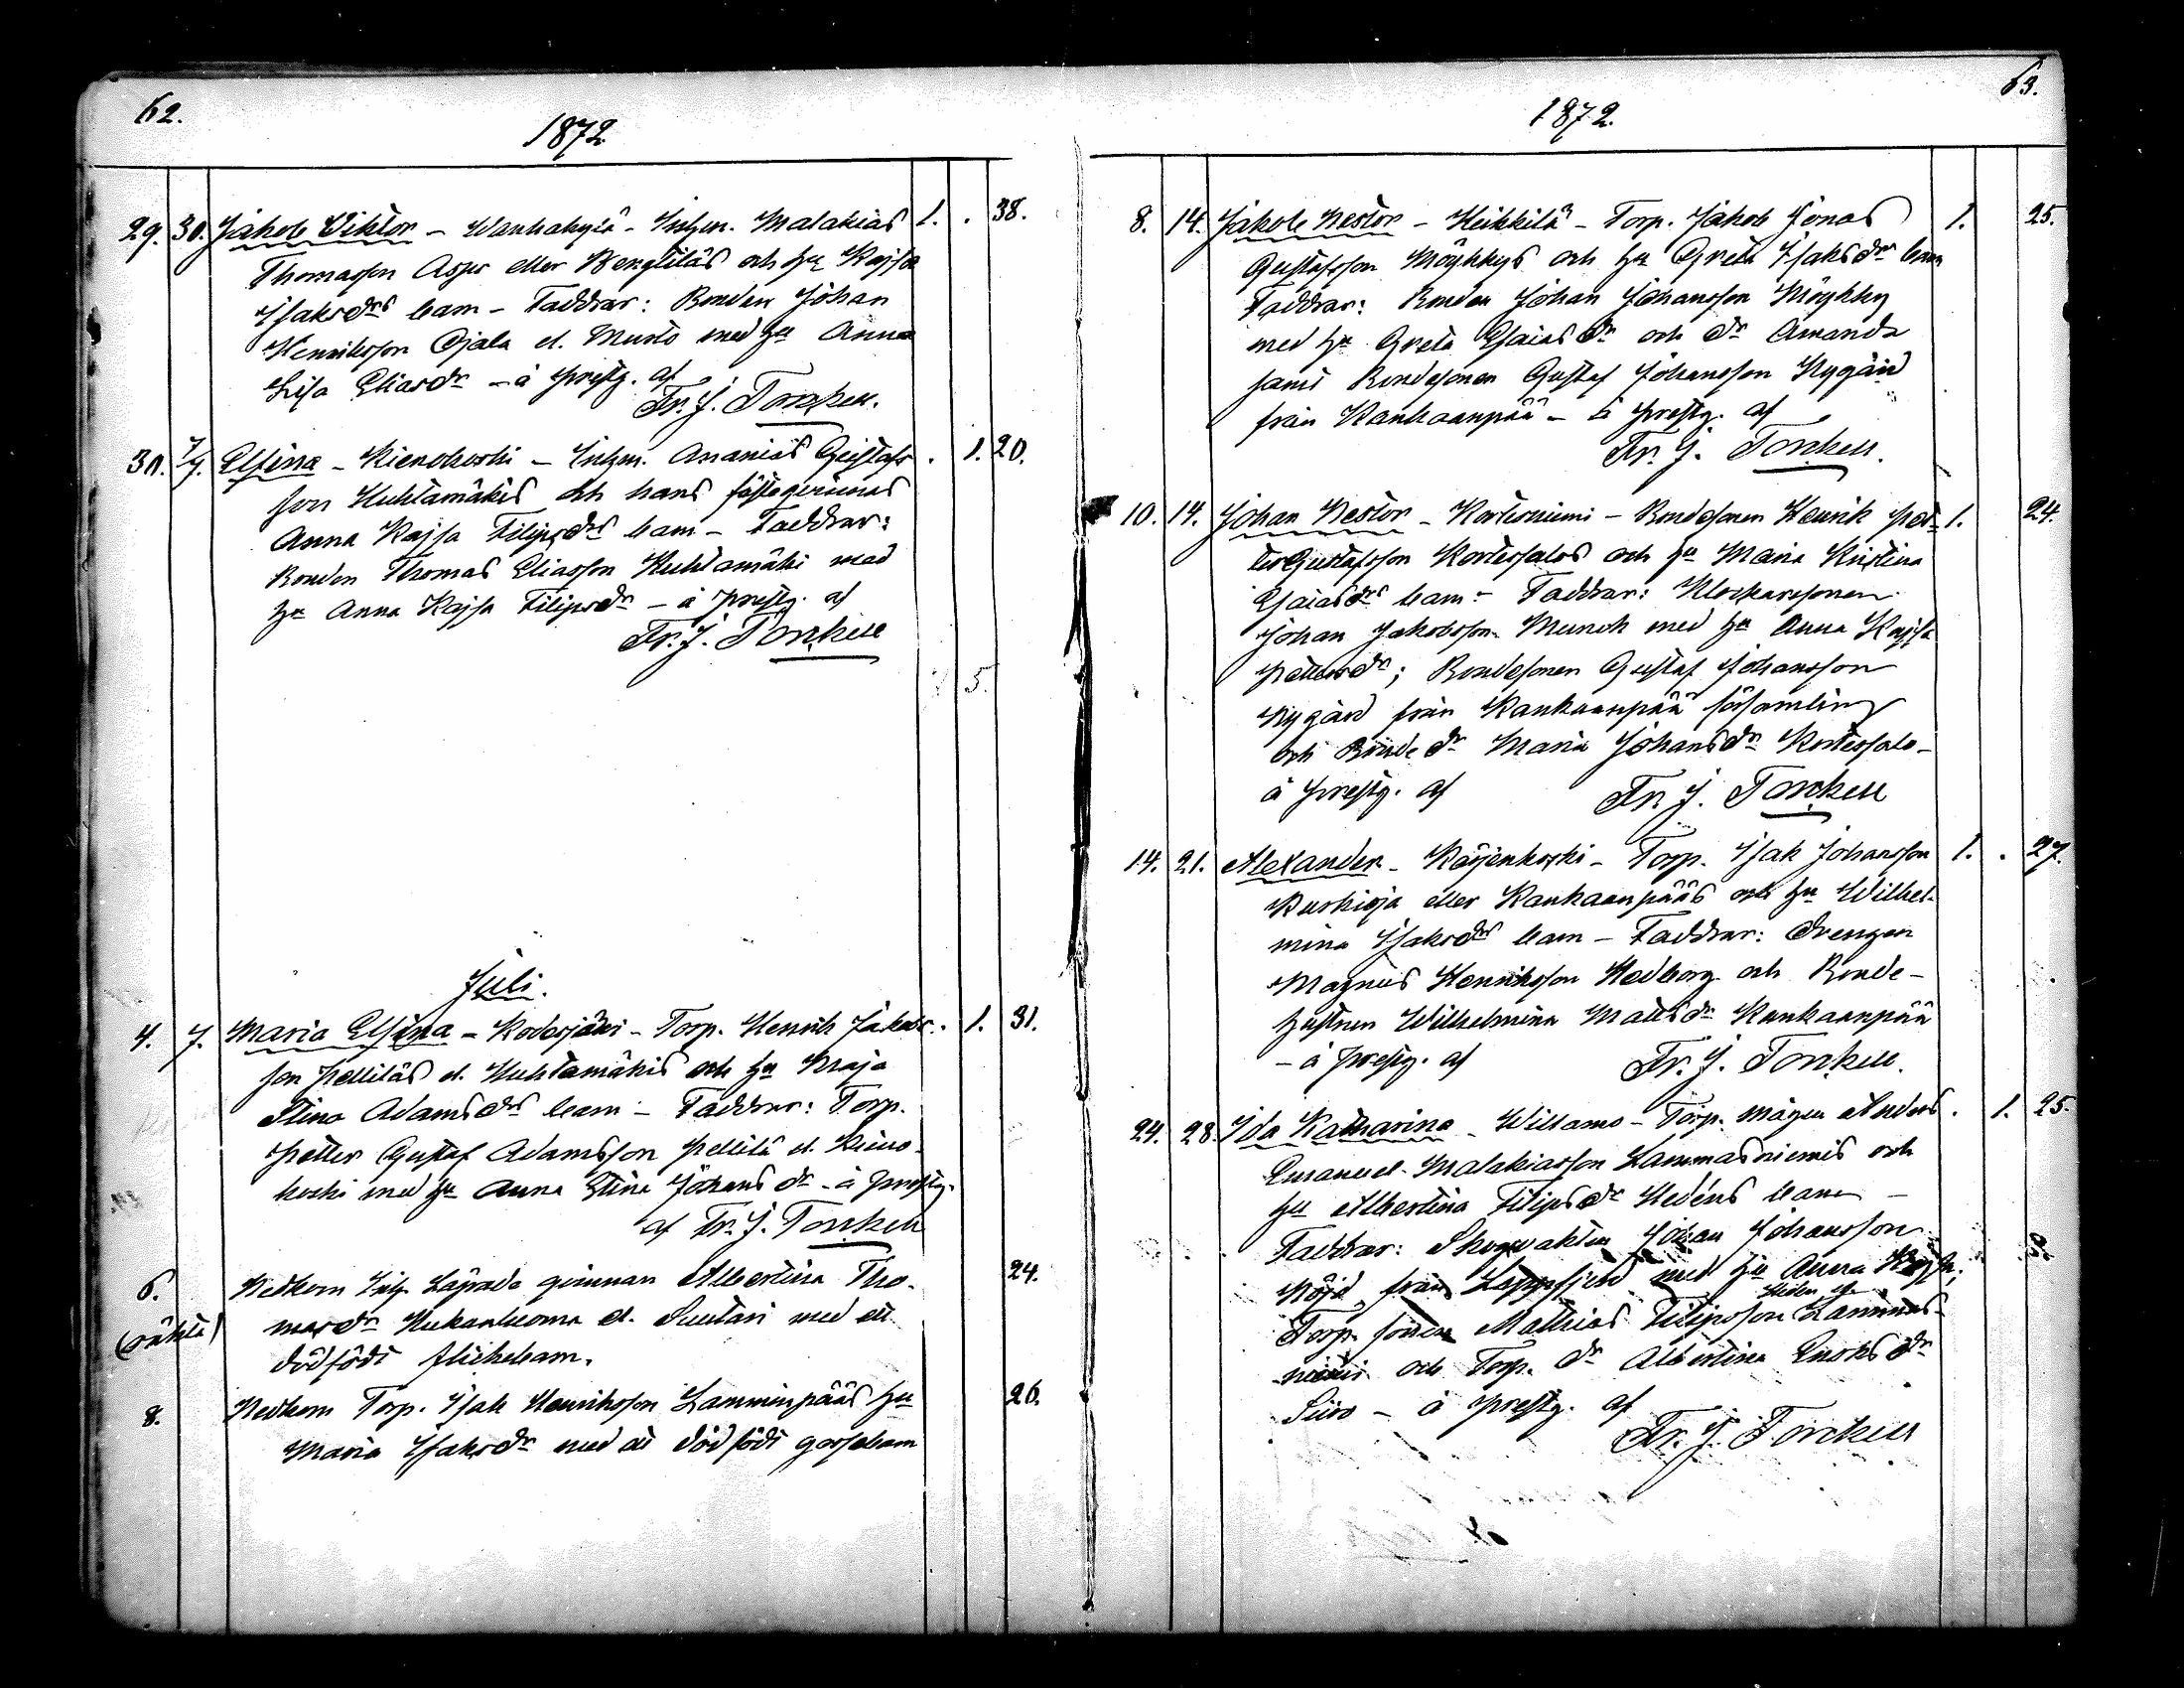 62.
1872
29. 30. Jakob Viktor - Wanhakylä - Inhys. Malakias 1. . 38.
Thomasson Asper eller Bengtiläs och hu Kajsa
Isaksdrs barn - Faddrar: Bonden Johan
Henriksson Ojala el. Musto med hu Anna
Lisa Eliasdr - å prestg. af
Fr. J. Torckell.
30. 7/7. Elfina - Kienokoski - Inhys. Ananias Gustafs- . 1. 20.
son Huhtamäkis och hans fästeqvinnas
Anna Kajsa Filipsdrs barn - Faddrar:
Bonden Thomas Eliasson Huhtamäki med
hu Anna Kajsa Filipsdr - å prestg. af
Fr. J. Torckell
5.
Juli.
4. 7. Maria Elfina - Kodesjärvi - Torp. Henrik Jakobs- . 1. 31.
son Pelliläs el. Huhtamäkis och hu Maja
Stina Adamsdrs barn - Faddrar: Torp.
Petter Gustaf Adamsson Pellilä el. Kieno-
koski med hu Anna Stina Johansdr - å prestg.
af Fr. J. Torckell
6. Nedkom Inhys Lägrade qvinnan Albertina Tho- 24.
masdr el. Suutari med ett
dödfödt flickebarn.
8. Nedkom Torp. Isak Henriksson Lamminpääs hu 26.
Maria Isaksdr med ett dödfödt gossebarn
63.
1872.
8. 14. Jakob Nestor - Heikkilä - Torp. Jakob Jonas 1. 25.
Gustafsson Möykkys och hu Greta Isaksdrs barn
Faddrar: Bonden Johan Johansson Möykky
med hu Greta Esaiasdr och dr Amanda
samt Bondesonen Gustaf Johansson Nygård
från Kankaanpää - å prestg. af
Fr. J. Torckell.
10. 14. Johan Nestor - Korteniemi - Bondesonen Henrik Pet- 1. 24.
ter Gustafsson Kortessalos och hu Maria Kristina
Esaiasdrs barn - Faddrar: Klockaresonen
Johan Jakobsson Munck med hu Anna Kajsa
Pettersdr; Bondesonen Gustaf Johansson
Nygård från Kankaanpää församling
och Bonde dr Maria Johansdr Kortessalo -
å prestg. af Fr. J. Torckell
14. 21. Alexander - Käyenkoski - Torp. Isak Johansson 1. . 27.
Kuskioja eller Kankaanpääs och hu Wilhel-
mina Isaksdrs barn - Faddrar: Drengen
Magnus Henriksson Hedborg och Bonde-
hustrun Wilhelmina Mattsdr Kankaanpää
- å prestg. af Fr. J. Torckell.
24. 28. Ida Katharina - Willamo - Torp. mågen Anders . 1. 25.
Emanuel Malakiasson Lammasniemis och
hu Albertina Filipsdr Hedéns barn -
Faddrar: Skogvaktaren Johan Johansson
Röjd från Lappfjerd med hu Anna Kajsa;
Heden el.
Torp. sonen Mathias Filipsson Lammas-
niemi och Torp. dr Albertina Enoksdr
Siiro - å prestg. af
Fr. J. Torckell